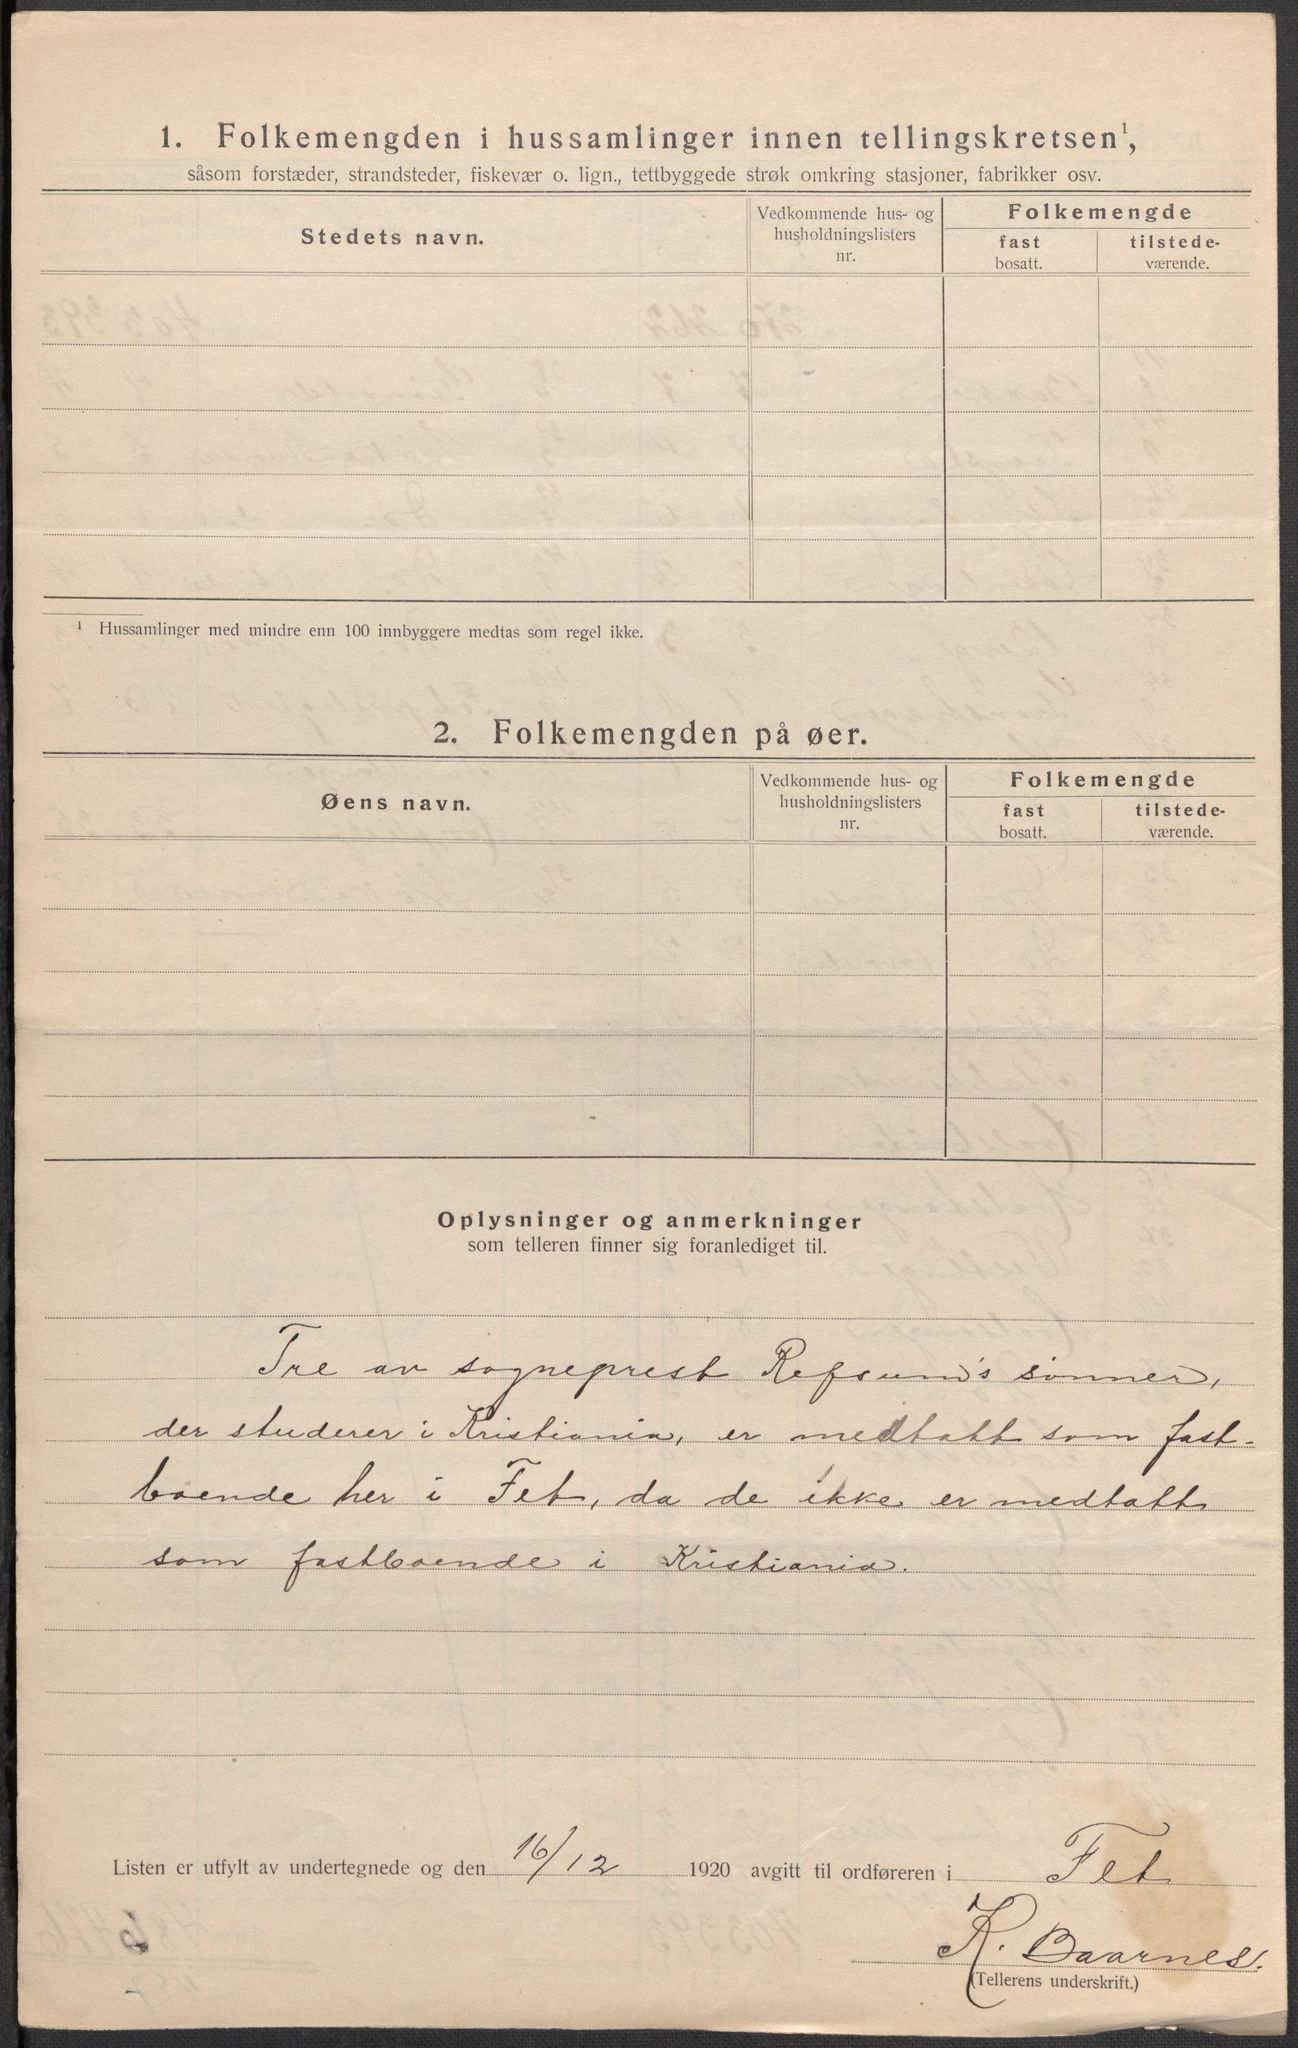 1. Folkemengden i hussamlinger innen tellingskretsen¹,
såsom forstæder, strandsteder, fiskevær o. lign., tettbyggede strøk omkring stasjoner, fabrikker osv.
Stedets navn.
Vedkommende hus- og
husholdningslisters
nr.
Folkemengde
fast
bosatt.
tilstede-
værende.
¹ Hussamlinger med mindre enn 100 innbyggere medtas som regel ikke.
2. Folkemengden på øer.
Øens navn.
Vedkommende hus- og
husholdningslisters
nr.
Folkemengde
fast
bosatt.
tilstede-
værende.
Oplysninger og anmerkninger
som telleren finner sig foranlediget til.
Tre av sogneprest Refsum's sønner,
der studerer i Kristiania, er medtatt som fast-
boende her i Fet, da de ikke er medtatt
som fastboende i Kristiania.
Listen er utfylt av undertegnede og den 16/12 1920 avgitt til ordføreren i Fet
K. Baarnes.
(Tellerens underskrift.)